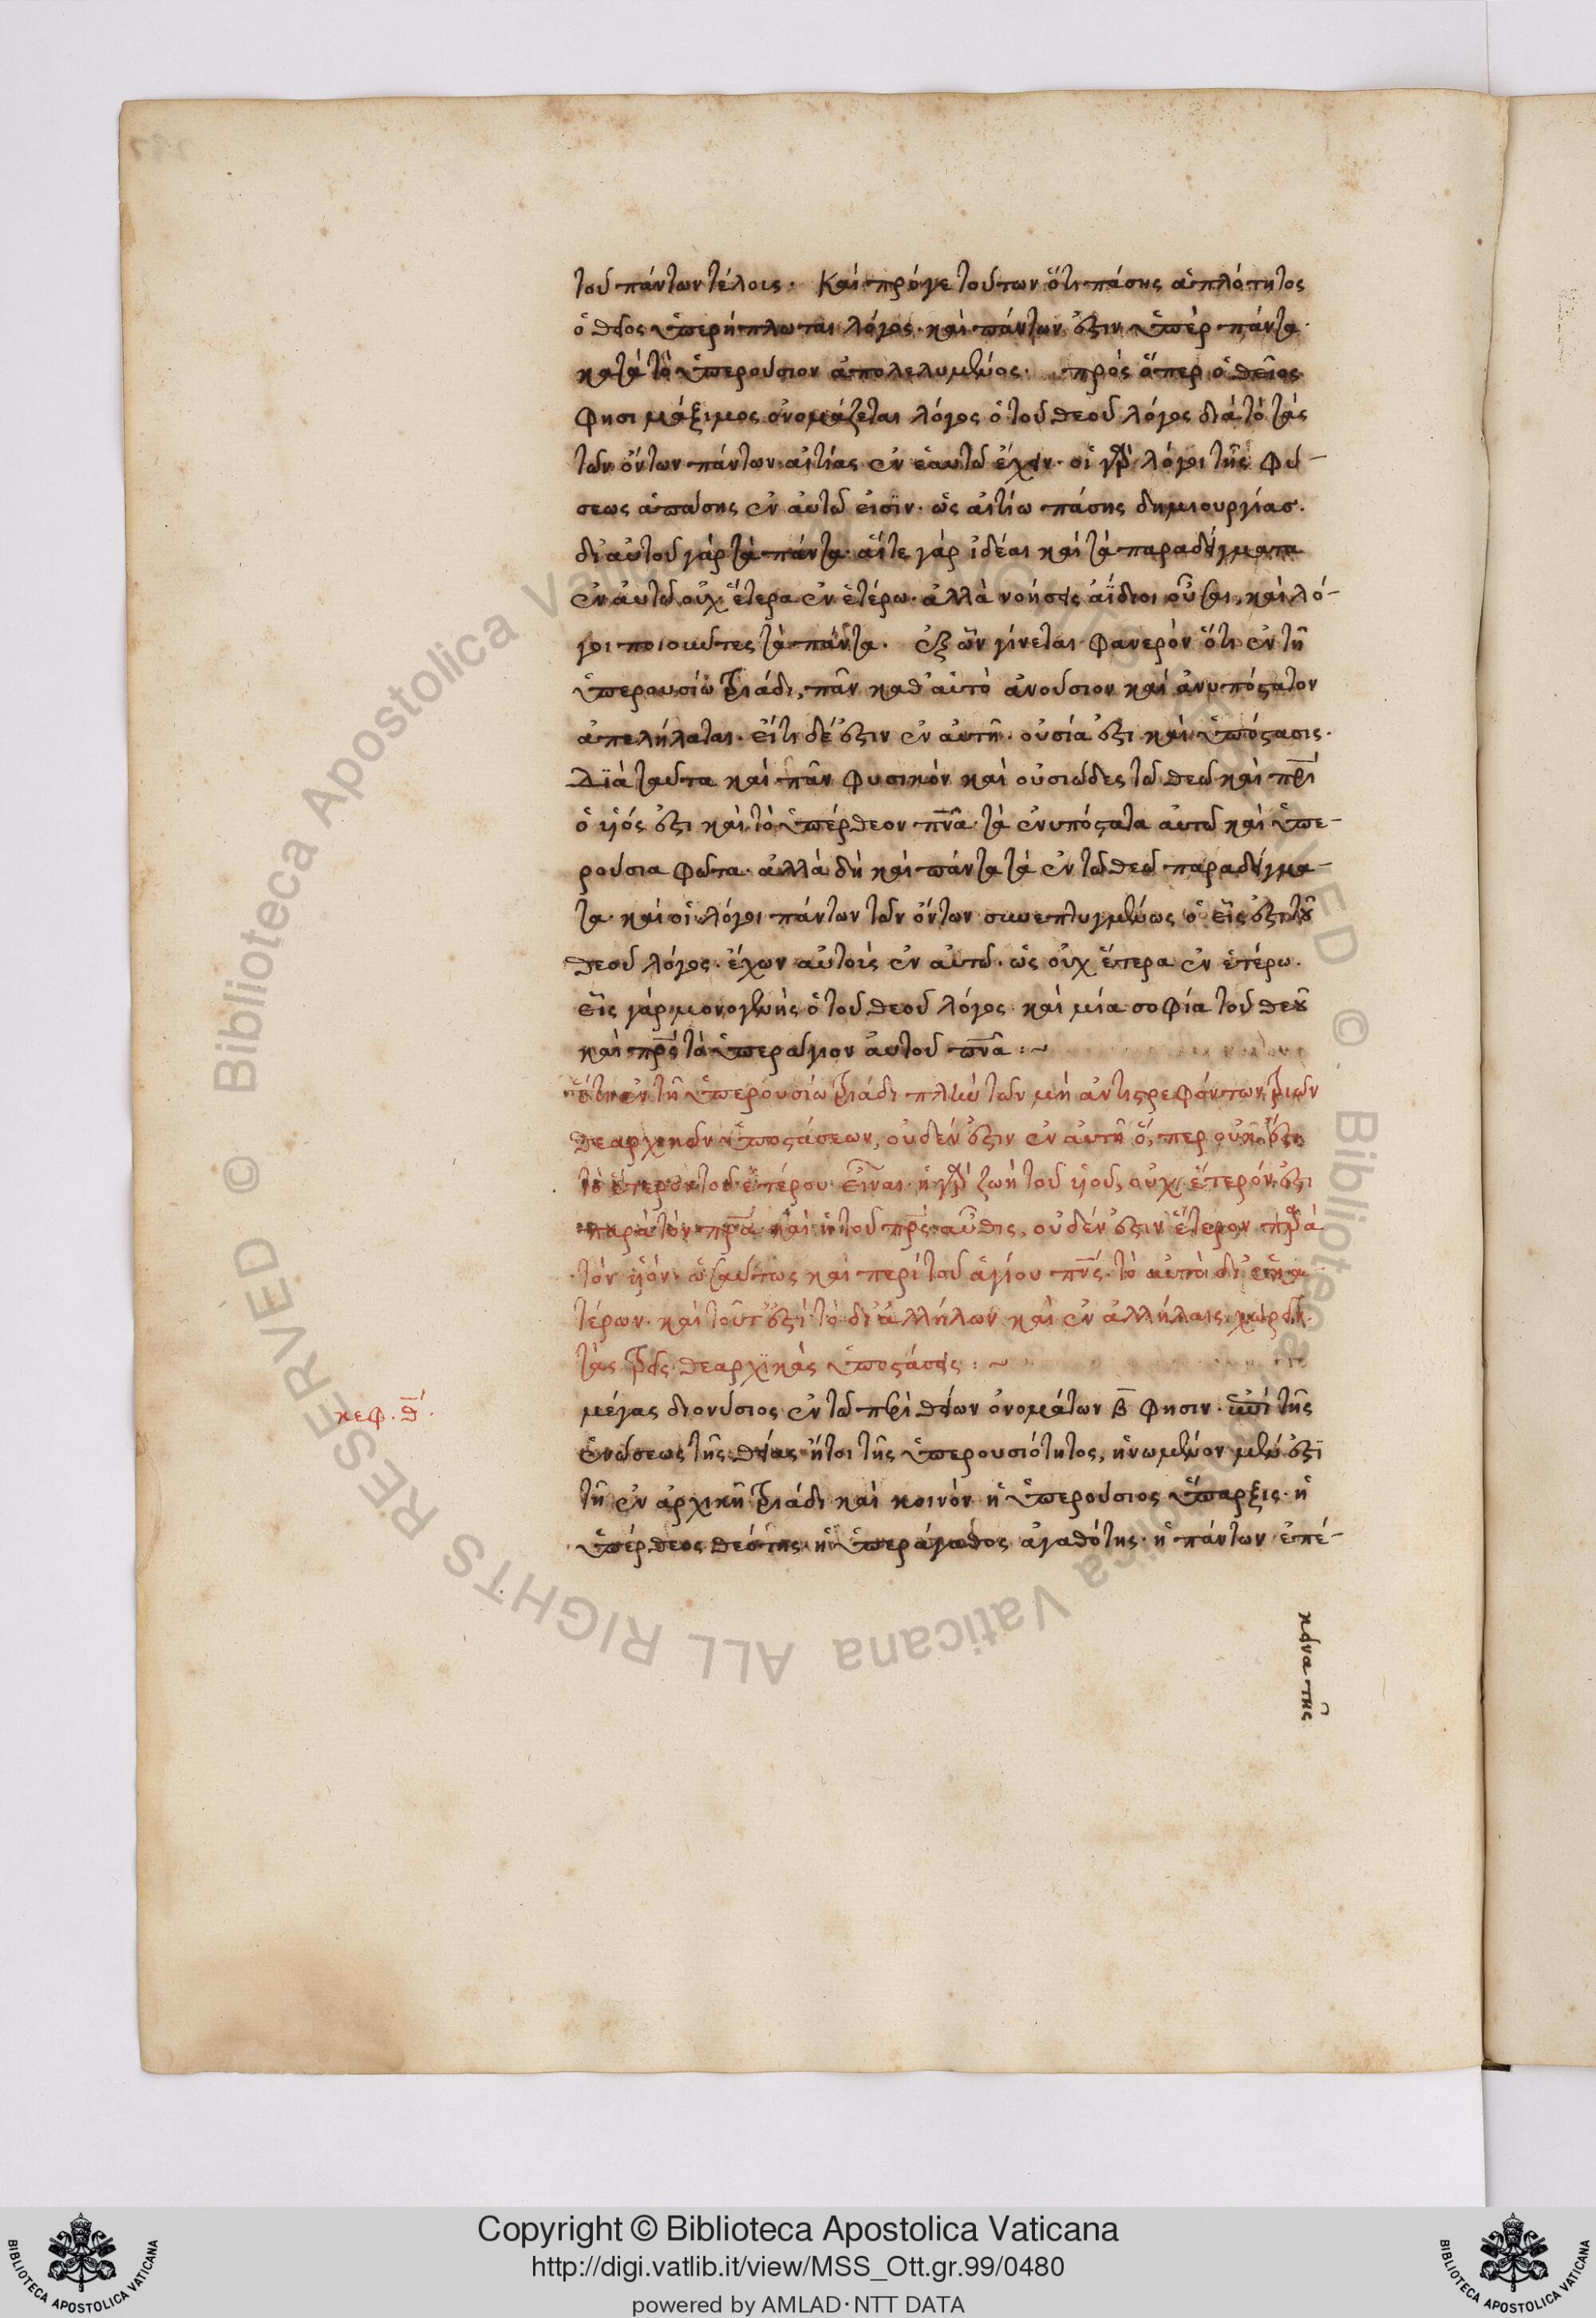 τοῦ πάντων τέλους· Καὶ πρόγε τούτων ὅτι πάσης ἁπλότητος
ὁ θεῖος ὑπερήπλωται λόγος· καὶ πάντων ἐστὶν ὑπὲρ πάντα
κατὰ τὸ ὑπερούσιον ἀπολελυμένος· πρὸς ἅπερ ὁ θεῖος
φησι μάξιμος ὀνομάζεται λόγος ὁ τοῦ θεοῦ λόγος διὰ τὸ τὰς
τῶν ὄντων πάντων αἰτίας ἐν ἑαυτῶ ἔχειν· οἱ γὰρ λόγοι τῆς φύ-
σεως ἁπάσης ἐν αὐτῶ εἰσὶν· ὡς αἰτίω πάσης δημιουργίας.
δι' αὐτοῦ γὰρ τὰ πάντα· αἵτε γὰρ ἰδέαι καὶ τὰ παραδείγματα
ἐν αὐτῶ οὐχ ἕτερα ἐν ἑτέρω· ἀλλὰ νοήσεις ἀΐδιοι οὖσαι, καὶ λό-
γοι ποιοῦντες τὰ πάντα. ἐξ ὧν γίνεται φανερὸν ὅτι ἐν τῆ
ὑπερουσίω τριάδι, πᾶν καθ' αὑτὸ ἀνούσιον καὶ ἀνυπόστατον
ἀπελήλαται· εἴτι δέ ἐστιν ἐν αὐτῆ· οὐσία ἐστι καὶ ὑπόστασις.
Διὰ ταῦτα καὶ πᾶν φυσικὸν καὶ οὐσιῶδες τῶ θεῶ καὶ πρὶ
ὁ υἱός ἐστι καὶ τὸ ὑπέρθεον πνα· τὰ ἐνυπόστατα αὐτῶ καὶ ὑπε-
ρούσια φῶτα· ἀλλὰ δὴ καὶ πάντα τὰ ἐν τῶ θεῶ παραδείγμα-
τα· καὶ οἱ λόγοι πάντων τῶν ὄντων συνεπτυγμένως ὁ εἷς ἐστι τοῦ
θεοῦ λόγος· ἔχων αὐτοὺς ἐν αὐτῶ· ὡς οὐχ ἕτερα ἐν ἑτέρω.
εἷς γὰρ μονογενὴς ὁ τοῦ θεοῦ λόγος· καὶ μία σοφία τοῦ θεοῦ
καὶ πρς τὸ ὑπεράγιον αὐτοῦ πνα :~
ὅτι ἐν τῆ ὑπερουσίω τριάδι πλὴν τῶν μὴ ἀντιστρεφόντων τριῶν
θεαρχικῶν ὑποστάσεων, οὐδέν ἐστιν ἐν αὐτῆ ὅ, περ οὐκ ἔστι
τὸ ἕτερον τοῦ ἑτέρου εἶναι· ἡ γὰρ ζωὴ τοῦ υἱοῦ, οὐχ ἕτερόν ἐστι
παρὰ τὸν πρα· καὶ ἡ τοῦ πρς αὖθις, οὐδέν ἐστιν ἕτερον παρὰ
τὸν υἱόν· ὡσαύτως καὶ περὶ τοῦ ἁγίου πνς· τὸ αὐτὸ δι' ἑκα
τέρων· καὶ τοῦτ' ἐστὶ τὸ δι' ἀλλήλων καὶ ἐν ἀλλήλαις χωρεῖν
τὰς τρεῖς θεαρχικὰς ὑποστάσεις :~
κεφ. θ'.
μέγας διονύσιος ἐν τῶ περὶ θείων ὀνομάτων β φησιν· ἐπὶ τῆς
ἑνώσεως τῆς θείας ἤτοι τῆς ὑπερουσιότητος, ἡνωμένον μὲν ἐστὶ
τῆ ἐν ἀρχικῆ τριάδι καὶ κοινὸν ἡ ὑπερούσιος ὕπαρξις· ἡ
ὑπέρθεος θεότης· ἡ ὑπεράγαθος ἀγαθότης· ἡ πάντων ἐπέ-
κεινα τῆς
Copyright © Biblioteca Apostolica Vaticana
http://digi.vatlib.it/view/MSS_Ott.gr.99/0480
powered by AMLAD·NTT DATA